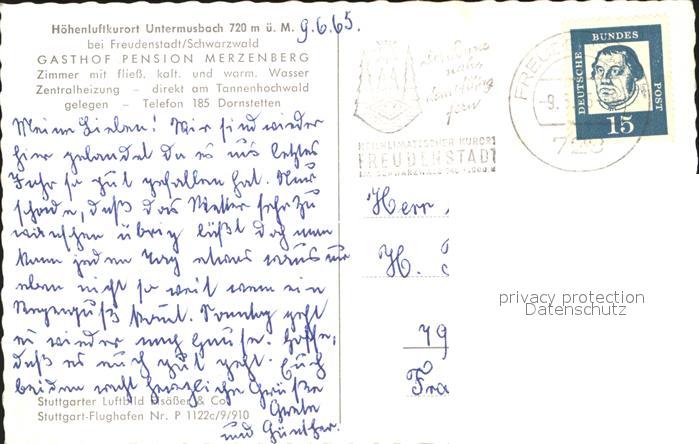 Höhenluftkurort Untermusbach 720 m ü. M. 9.6.65.
bei Freudenstadt/Schwarzwald
GASTHOF PENSION MERZENBERG
Zimmer mit fließ. kalt. und warm. Wasser
Zentralheizung – direkt am Tannenhochwald
gelegen – Telefon 185 Dornstetten
Meine Lieben! Wir sind wieder
hier gelandet da es uns letztes
Jahr so gut gefallen hat. Nur
schade, daß das Wetter sehr zu
wünschen übrig läßt doch man
kann jeden Tag etwas raus nur
eben nicht so weit wenn ein
Regenguß kommt. Sonntag geht
es wieder nach Hause. Hoffe,
daß es Euch gut geht. Euch
beiden recht herzliche Grüße
Grete
und Günther.
Stuttgarter Luftbild Elsäßer & Co.
Stuttgart-Flughafen Nr. P 1122c/9/910
dem Himmel
nahe
dem Alltag
fern
HEILKLIMATISCHER KURORT
FREUDENSTADT
IM SCHWARZWALD 740-1000 M
FREUDE
-9.6.65
728
DEUTSCHE BUNDES POST
15
Herr
H.
79
Fra
privacy protection
Datenschutz